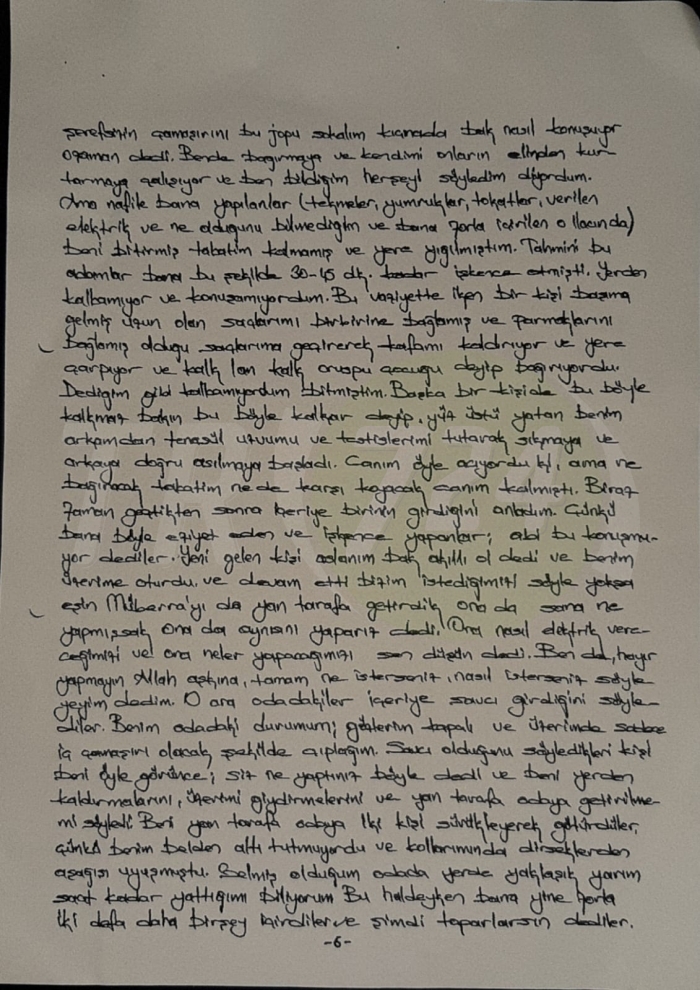 şerefsizin çamaşırını bu jopu sokalım kıçınada bak nasıl konuşuyor
ozaman dedi. Bende bağırmaya ve kendimi onların elinden kur-
tarmaya çalışıyor ve ben bildiğim herşeyi söyledim diyordum.
Ama nafile bana yapılanlar (tekmeler, yumruklar, tokatlar, verilen
elektrik ve ne olduğunu bilmediğim ve bana zorla içirilen o ilacında)
beni bitirmiş takatim kalmamış ve yere yığılmıştım. Tahmini bu
adamlar bana bu şekilde 30-45 dk. kadar işkence etmişti. Yerden
kalkamıyor ve konuşamıyordum. Bu vaziyette iken bir kişi başıma
gelmiş uzun olan saçlarımı birbirine bağlamış ve parmaklarını
bağlamış olduğu saçlarıma geçirerek kafamı kaldırıyor ve yere
çarpıyor ve kalk lan kalk orospu çocuğu deyip bağırıyordu.
Dediğim gibi kalkamıyordum bitmiştim. Başka bir kişide bu böyle
kalkmaz bakın bu böyle kalkar deyip, yüz üstü yatan benim
arkamdan tenasül uzvumu ve testislerimi tutarak sıkmaya ve
arkaya doğru asılmaya başladı. Canım öyle acıyordu ki, ama ne
bağıracak takatim ne de karşı koyacak canım kalmıştı. Biraz
zaman geçtikten sonra içeriye birinin girdiğini anladım. Çünkü
bana böyle eziyet eden ve işkence yapanlar; abi bu konuşmu-
yor dediler. Yeni gelen kişi aslanım bak akıllı ol dedi ve benim
üzerime oturdu, ve devam etti bizim istediğimizi söyle yoksa
eşin Müberra'yı da yan tarafa getirdik ona da sana ne
yapmışsak ona da aynısını yaparız dedi. Ona nasıl elektrik vere-
ceğimizi ve ona neler yapacağımızı sen düşün dedi. Ben de, hayır
yapmayın Allah aşkına, tamam ne isterseniz, nasıl isterseniz söyle-
yeyim dedim. O ara odadakiler içeriye savcı girdiğini söyle-
diler. Benim odadaki durumum; gözlerim kapalı ve üzerimde sadece
iç çamaşırı olacak şekilde çıplağım. Savcı olduğunu söyledikleri kişi
beni öyle görünce; siz ne yaptınız böyle dedi ve beni yerden
kaldırmalarını, üzerimi giydirmelerini ve yan tarafa odaya getirilme-
mi söyledi. Beni yan tarafa odaya iki kişi sürükleyerek götürdüler,
çünkü benim belden altı tutmuyordu ve kollarımında dirseklerden
aşağısı uyuşmuştu. Gelmiş olduğum odada yerde yaklaşık yarım
saat kadar yattığımı biliyorum Bu haldeyken bana yine zorla
iki defa daha birşey içirdiler ve şimdi toparlarsın dediler.
-6-